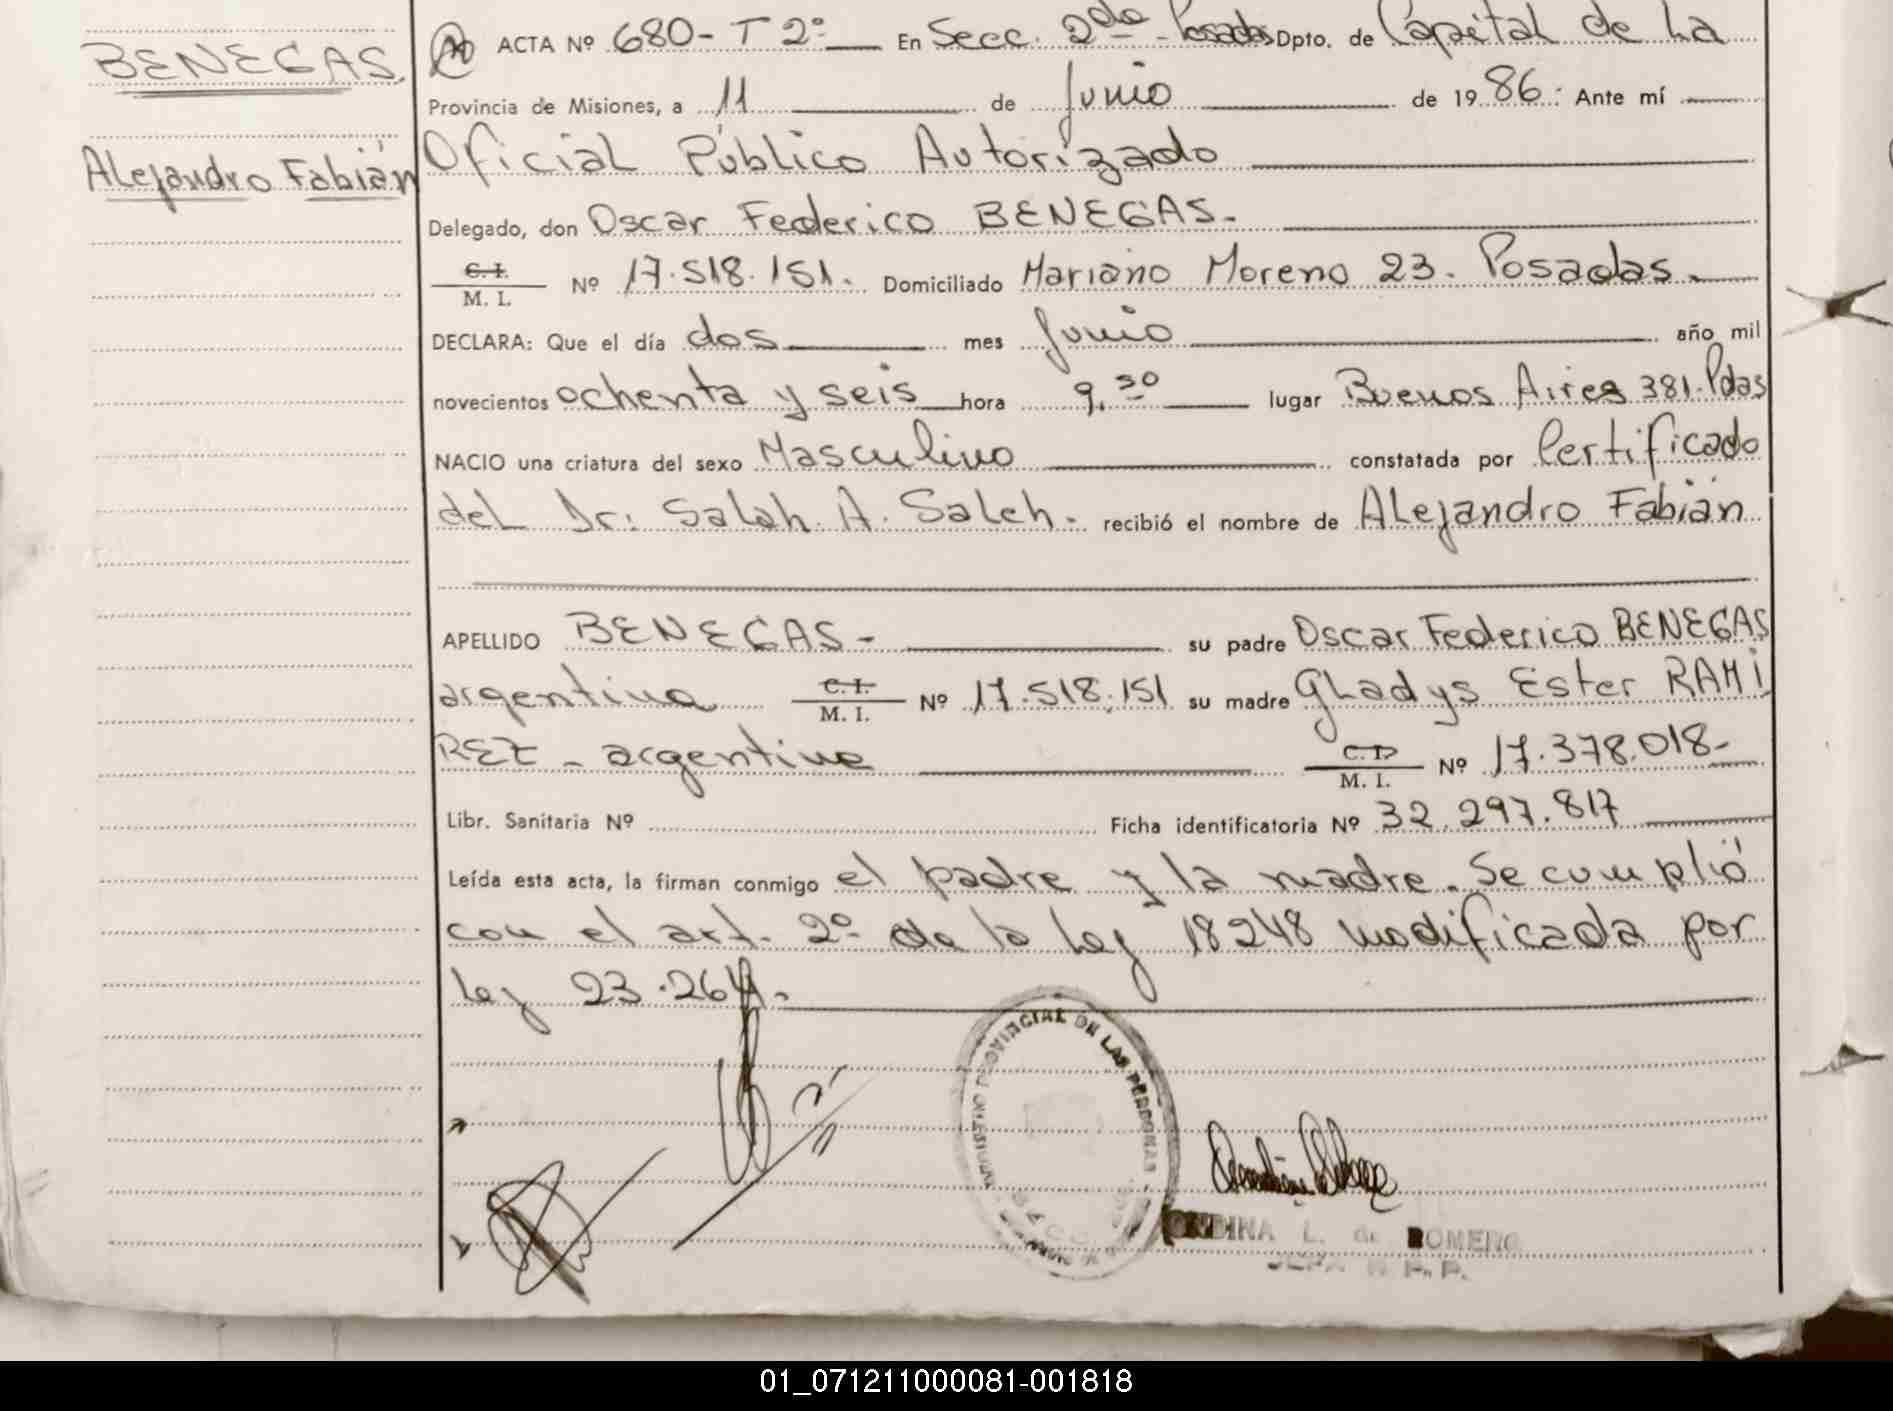 BENEGAS.
Alejandro Fabián
ACTA Nº 680- T 2º En Secc. 2da Posadas Dpto. de Capital de La
Provincia de Misiones, a 11 de Junio de 1986: Ante mí
Oficial Público Autorizado
Delegado, don Oscar Federico BENEGAS.
C. I.
M. I. Nº 17.518.151. Domiciliado Mariano Moreno 23. Posadas.
DECLARA: Que el día dos mes Junio año mil
novecientos ochenta y seis hora 9.30 lugar Buenos Aires 381. Pdas
NACIO una criatura del sexo Masculino constatada por Certificado
del Dr. Salah A. Saleh. recibió el nombre de Alejandro Fabián
APELLIDO BENEGAS- su padre Oscar Federico BENEGAS
argentino C. I. M. I. Nº 17.518.151 su madre Gladys Ester RAMI
REZ - argentina C. I. M. I. Nº 17.378.018-
Libr. Sanitaria Nº Ficha identificatoria Nº 32.297.817
Leída esta acta, la firman conmigo el padre y la madre. Se cumplió
con el art. 2º de la ley 18248 modificada por
ley 23.264.
PROVINCIAL DE LAS PERSONAS
ONDINA L. de ROMERO
01_071211000081-001818